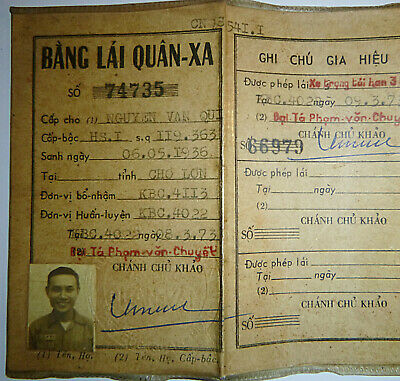 CN 1854I.I
BẰNG LÁI QUÂN-XA
SỐ 74735
Cấp cho (1) NGUYEN VAN QUI
Cấp-bậc HS.I s.q 119.363
Sanh ngày 06.05.1936
Tại tỉnh CHO LON
Đơn-vị bổ-nhậm KBC.4113
Đơn-vị Huấn-luyện KBC.4022
Tại KBC.4022 ngày 08.3.73
Đại Tá Phạm-văn-Chuyết
CHÁNH CHỦ KHẢO
(1) Tên, Họ. (2) Tên, Họ, Cấp-bậc.
GHI CHÚ GIA HIỆU
Được phép lái Xe trọng tải hơn 3
Tại C.402 ngày 09.3.7
(2) Đại Tá Phạm-văn-Chuy
CHÁNH CHỦ KHẢO
SỐ 66979
Được phép lái
Tại ngày
(2)
CHÁNH CHỦ KHẢO
SỐ
Được phép lái
Tại ngày
(2)
CHÁNH CHỦ KHẢO
SỐ